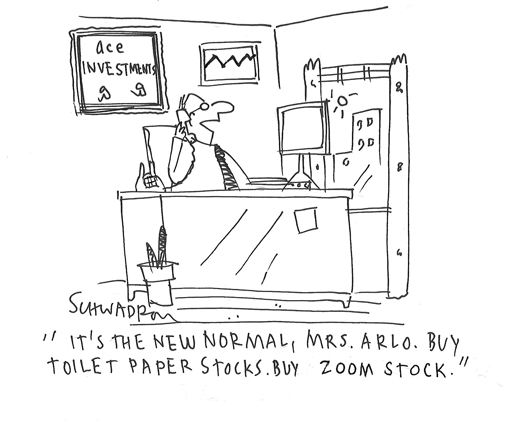 ace
INVESTMENTS
SCHWADRON
" IT'S THE NEW NORMAL, MRS. ARLO. BUY
TOILET PAPER STOCKS. BUY ZOOM STOCK."